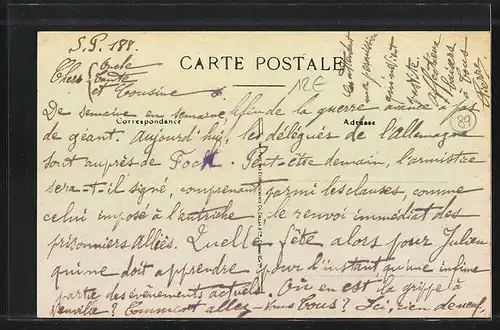 S.P. 188.
CARTE POSTALE
Chers
Oncle
Tante
et Cousine
12E
89
De semaine en semaine, la fin de la guerre avance à pas
Correspondance
Adresse
de géant. Aujourd'hui, les délégués de l'allemagne
sont auprès de Foch. Peut-être demain, l'armistice
sera-t-il signé, comprenant parmi les clauses, comme
celui imposé à l'autriche, le renvoi immédiat des
prisonniers Alliés. Quelle fête alors pour Julien
qui ne doit apprendre pour l'instant qu'une infime
partie des évènements actuels. Où en est la grippe à
? Comment allez-vous tous? Ici, rien de neuf.
En attendant
ma permission
Affectueux
baisers
à tous
Pierre